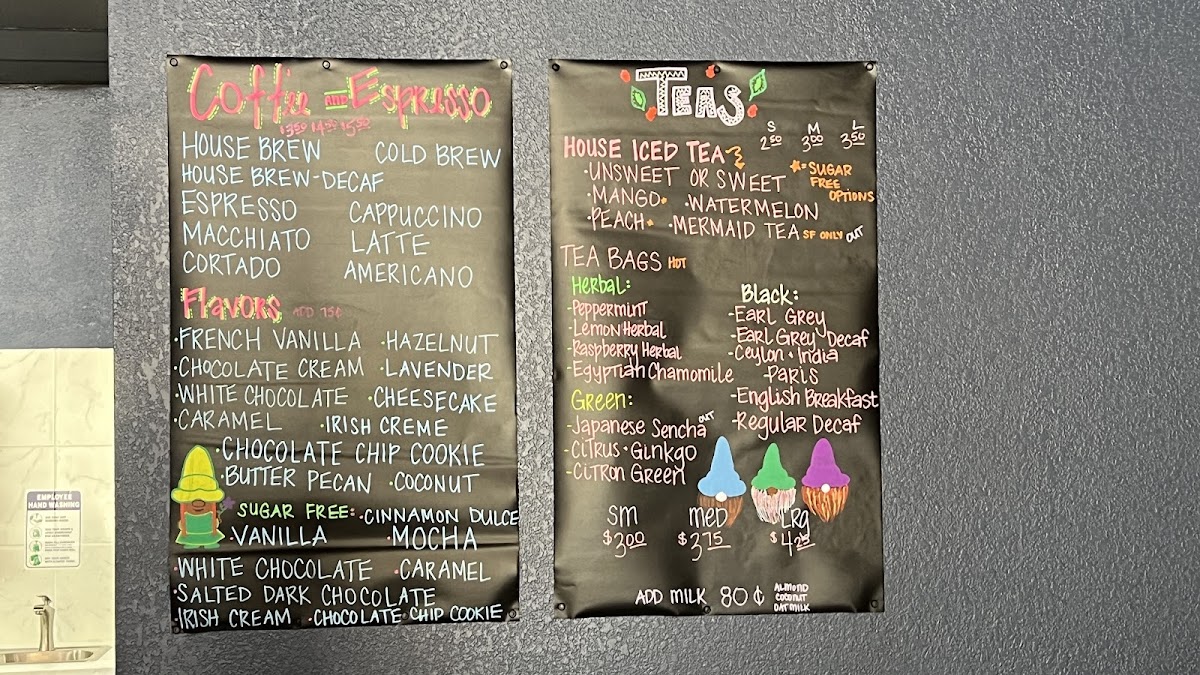 Coffee and Espresso
$3.50 4.50 5.50
HOUSE BREW COLD BREW
HOUSE BREW-DECAF
ESPRESSO CAPPUCCINO
MACCHIATO LATTE
CORTADO AMERICANO
Flavors ADD 75¢
·FRENCH VANILLA ·HAZELNUT
·CHOCOLATE CREAM ·LAVENDER
·WHITE CHOCOLATE ·CHEESECAKE
·CARAMEL ·IRISH CREME
·CHOCOLATE CHIP COOKIE
·BUTTER PECAN ·COCONUT
SUGAR FREE: ·CINNAMON DULCE
·VANILLA ·MOCHA
·WHITE CHOCOLATE ·CARAMEL
·SALTED DARK CHOCOLATE
·IRISH CREAM ·CHOCOLATE CHIP COOKIE
TEAS
S M L
2.50 3.00 3.50
HOUSE ICED TEA
·UNSWEET OR SWEET
·MANGO ·WATERMELON
·PEACH ·MERMAID TEA SF ONLY OUT
= SUGAR
FREE
OPTIONS
TEA BAGS HOT
Herbal:
-Peppermint
-Lemon Herbal
-Raspberry Herbal
-Egyptian Chamomile
Green:
-Japanese Sencha OUT
-Citrus·Ginkgo
-Citron Green
Black:
-Earl Grey
-Earl Grey Decaf
-Ceylon·India
-Paris
-English Breakfast
-Regular Decaf
SM MED LRG
$3.00 $3.75 $4.25
ADD MILK 80¢
ALMOND
COCONUT
OAT MILK
EMPLOYEE
HAND WASHING